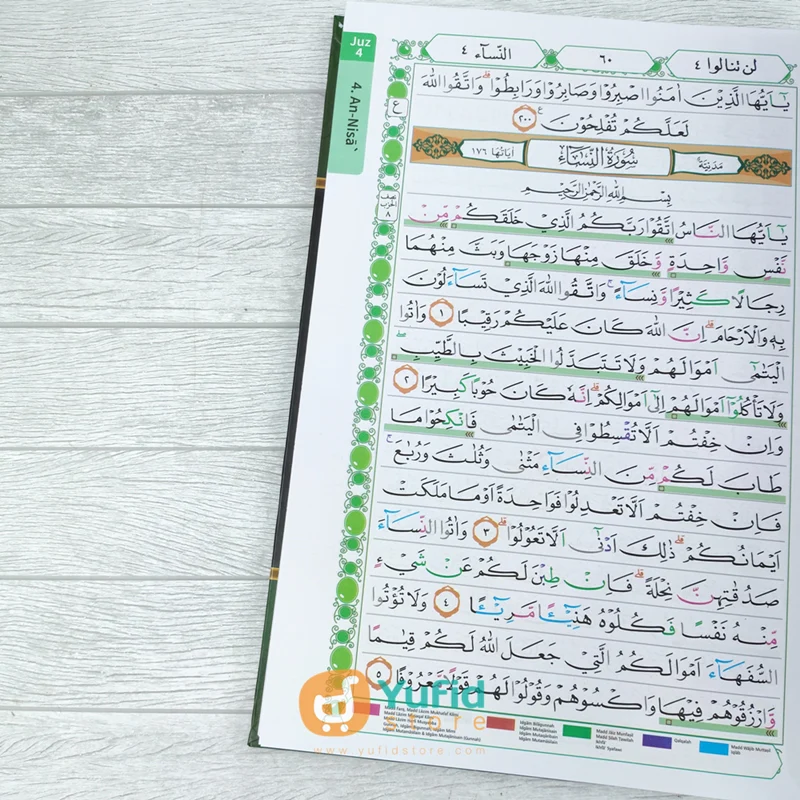 Juz
4
4. An-Nisā`
لن تنالوا ٤
٦٠
النّسآء ٤
يٰٓاَيُّهَا الَّذِيْنَ اٰمَنُوا اصْبِرُوْا وَصَابِرُوْا وَرَابِطُوْاۗ وَاتَّقُوا اللّٰهَ
لَعَلَّكُمْ تُفْلِحُوْنَ ࣖ ٢٠٠
مَدَنِيَّةٌ
سُوْرَةُ النِّسَاۤءِ
اٰيَاتُهَا ١٧٦
بِسْمِ اللّٰهِ الرَّحْمٰنِ الرَّحِيْمِ
ع
نصف
الحزب
٨
يٰٓاَيُّهَا النَّاسُ اتَّقُوْا رَبَّكُمُ الَّذِيْ خَلَقَكُمْ مِّنْ
نَّفْسٍ وَّاحِدَةٍ وَّخَلَقَ مِنْهَا زَوْجَهَا وَبَثَّ مِنْهُمَا
رِجَالًا كَثِيْرًا وَّنِسَاۤءًۚ وَاتَّقُوا اللّٰهَ الَّذِيْ تَسَاۤءَلُوْنَ
بِهٖ وَالْاَرْحَامَۗ اِنَّ اللّٰهَ كَانَ عَلَيْكُمْ رَقِيْبًا ١ وَاٰتُوا
الْيَتٰمٰٓى اَمْوَالَهُمْ وَلَا تَتَبَدَّلُوا الْخَبِيْثَ بِالطَّيِّبِۖ
وَلَا تَأْكُلُوْٓا اَمْوَالَهُمْ اِلٰٓى اَمْوَالِكُمْۗ اِنَّهٗ كَانَ حُوْبًا كَبِيْرًا ٢
وَاِنْ خِفْتُمْ اَلَّا تُقْسِطُوْا فِى الْيَتٰمٰى فَانْكِحُوْا مَا
طَابَ لَكُمْ مِّنَ النِّسَاۤءِ مَثْنٰى وَثُلٰثَ وَرُبٰعَۚ
فَاِنْ خِفْتُمْ اَلَّا تَعْدِلُوْا فَوَاحِدَةً اَوْ مَا مَلَكَتْ
اَيْمَانُكُمْۗ ذٰلِكَ اَدْنٰٓى اَلَّا تَعُوْلُوْاۗ ٣ وَاٰتُوا النِّسَاۤءَ
صَدُقٰتِهِنَّ نِحْلَةًۗ فَاِنْ طِبْنَ لَكُمْ عَنْ شَيْءٍ
مِّنْهُ نَفْسًا فَكُلُوْهُ هَنِيْۤـًٔا مَّرِيْۤـًٔا ٤ وَلَا تُؤْتُوا
السُّفَهَاۤءَ اَمْوَالَكُمُ الَّتِيْ جَعَلَ اللّٰهُ لَكُمْ قِيٰمًا
وَّارْزُقُوْهُمْ فِيْهَا وَاكْسُوْهُمْ وَقُوْلُوْا لَهُمْ قَوْلًا مَّعْرُوْفًا ٥
Yufid
store
www.yufidstore.com